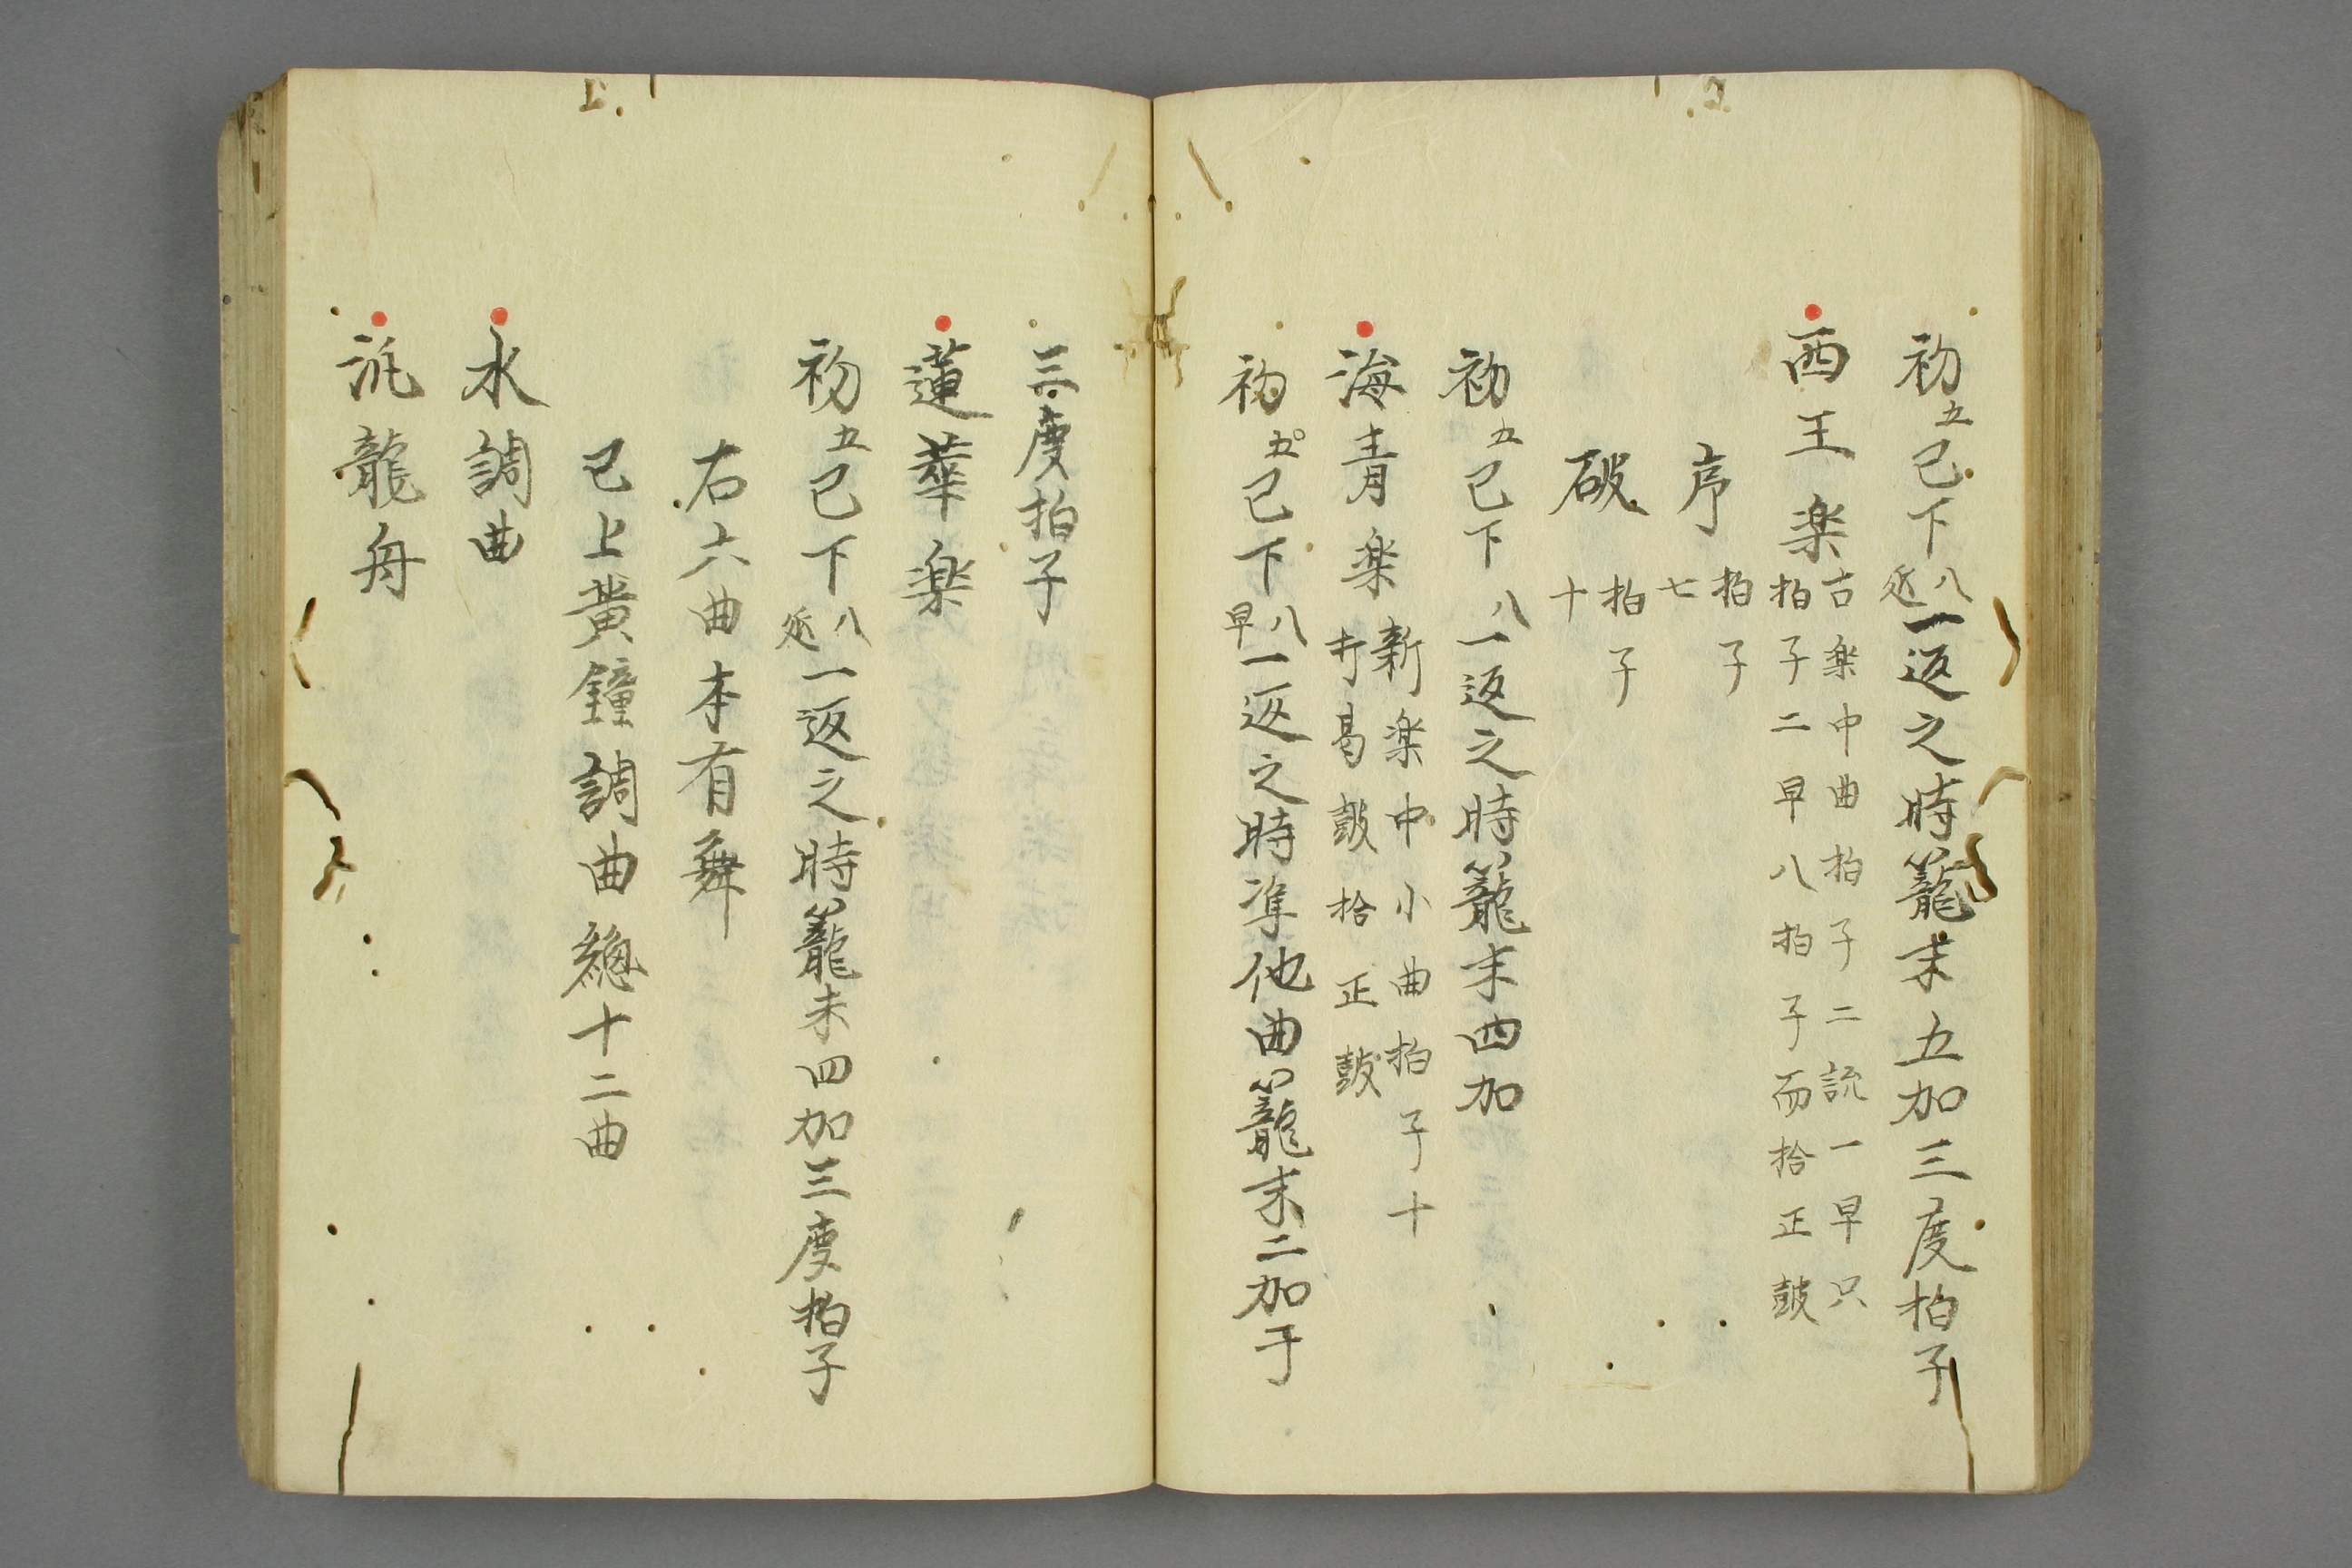 初五已下八延一返之時籠末五加三度拍子
西王楽古楽中曲拍子二説一早只
拍子二早八拍子而拾正皷
序拍子
七
破拍子
十
初五已下八一返之時籠末四加
海青楽新楽中小曲拍子十
有曷皷拾正皷
初五已下八早一返之時準他曲籠末二加于
三度拍子
蓮華楽
初五已下八延一返之時籠末四加三度拍子
右六曲本有舞
已上黄鐘調曲総十二曲
水調曲
泛龍舟